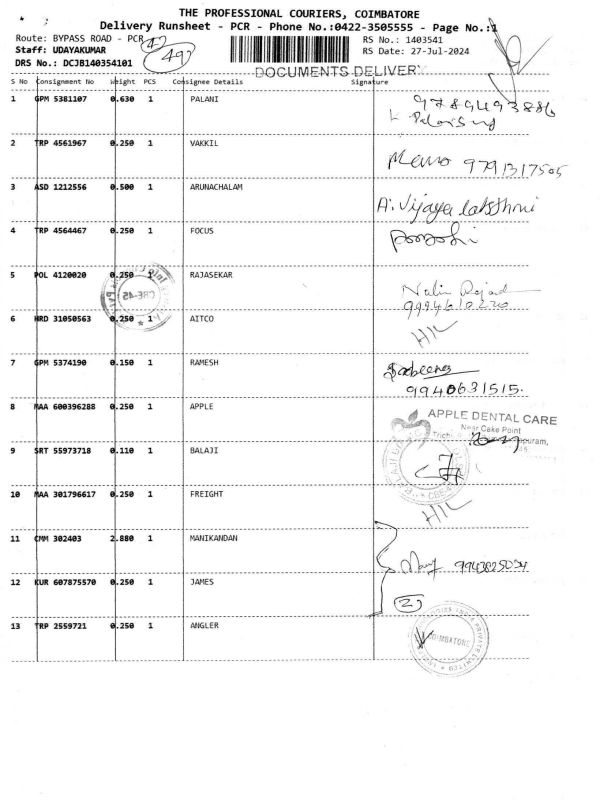 THE PROFESSIONAL COURIERS, COIMBATORE
Delivery Runsheet - PCR - Phone No.:0422-3505555 - Page No.:1
Route: BYPASS ROAD - PCR
RS No.: 1403541
Staff: UDAYAKUMAR
RS Date: 27-Jul-2024
DRS No.: DCJB140354101
DOCUMENTS DELIVERY
S No Consignment No Weight PCS Consignee Details Signature
1 GPM 5381107 0.630 1 PALANI 9789493886
2 TRP 4561967 0.250 1 VAKKIL 9791317505
3 ASD 1212556 0.500 1 ARUNACHALAM A. Vijaya lakshmi
4 TRP 4564467 0.250 1 FOCUS
5 POL 4120020 0.250 1 RAJASEKAR
9994610220
6 HRD 31050563 0.250 1 AITCO
7 GPM 5374190 0.150 1 RAMESH
9940631515.
8 MAA 600396288 0.250 1 APPLE APPLE DENTAL CARE
Near Cake Point
9 SRT 55973718 0.110 1 BALAJI
10 MAA 301796617 0.250 1 FREIGHT
11 CMM 302403 2.880 1 MANIKANDAN
12 KUR 607875570 0.250 1 JAMES
2
13 TRP 2559721 0.250 1 ANGLER COIMBATORE